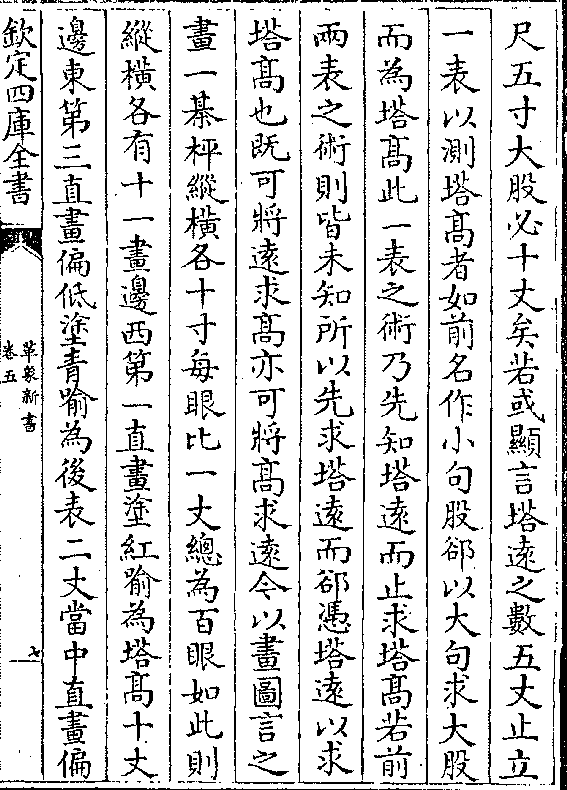 尺五寸大股必十丈矣若或顯言塔逺之數五丈止立
一表以測塔髙者如前名作小句股郤以大句求大股
而為塔髙此一表之術乃先知塔逺而止求塔髙若前
兩表之術則皆未知所以先求塔逺而郤慿塔逺以求
塔髙也既可將逺求髙亦可將髙求逺今以畫圖言之
畫一棊枰縱横各十寸每眼比一丈總為百眼如此則
縱横各有十一畫邊西第一直畫塗紅喻為塔髙十丈
邊東第三直畫偏低塗青喻為後表二丈當中直畫偏
欽定四庫全書
革象新書
卷五
七